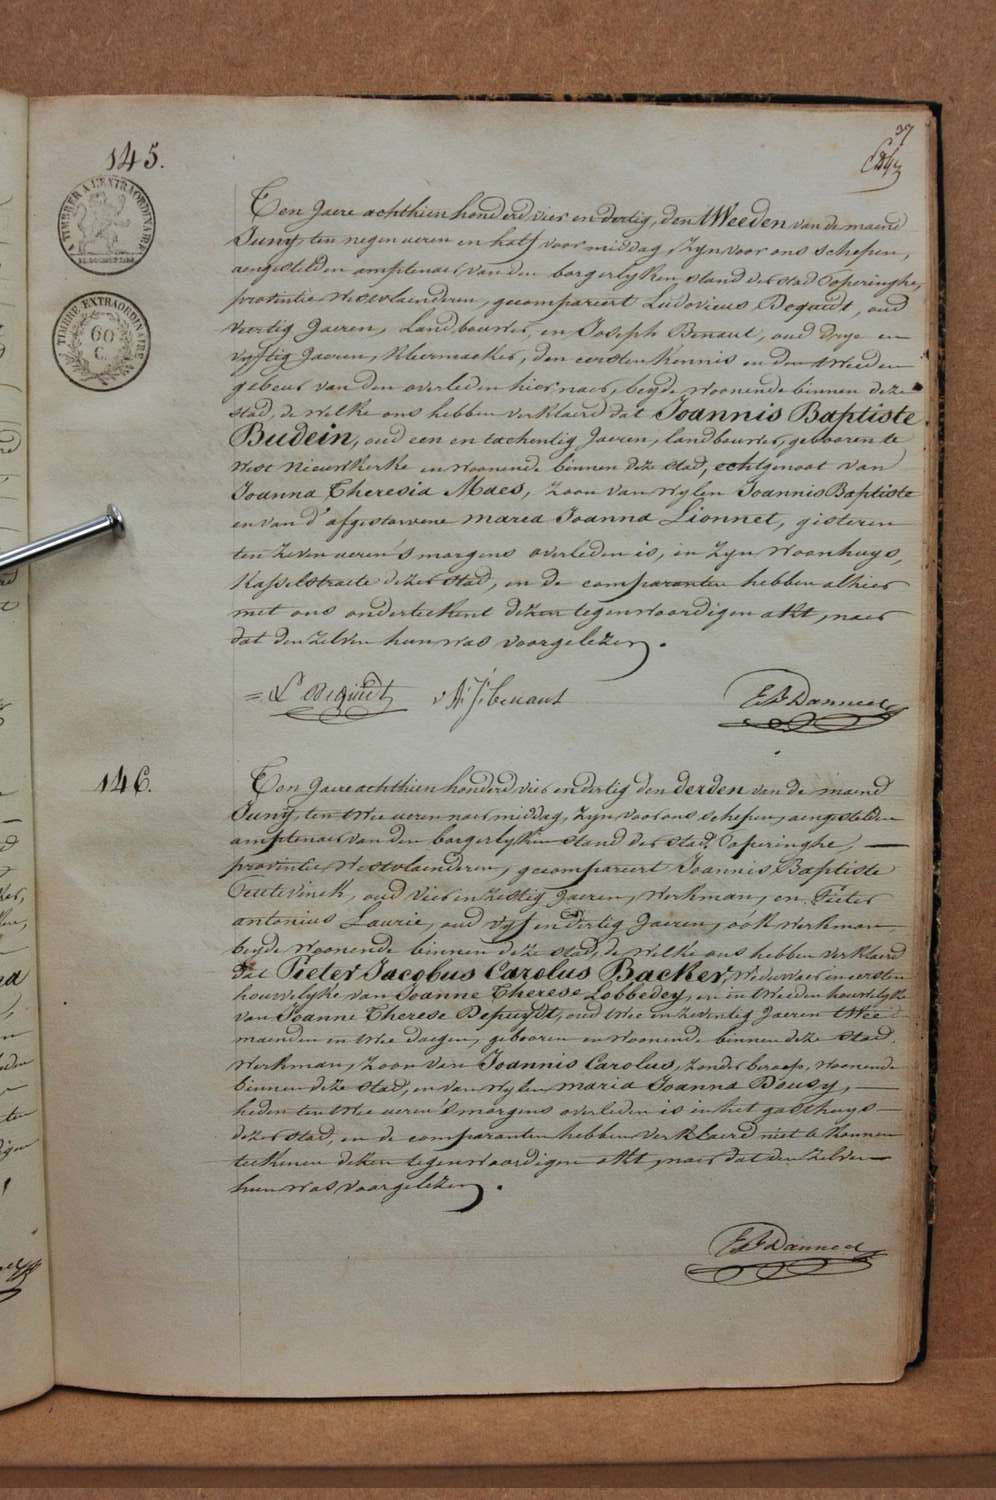 37
145.
TIMBRE A L'EXTRAORDINAIRE
TIMBRE EXTRAORDINAIRE
60
C.
Ten Jaere achthien honderd vier en dertig, den tWeeden van de maend
Juny, ten negen ueren en half voor middag, Zyn voor ons schepen,
aengestelden amptenaer van den borgerlyken stand der stad Poperinghe,
provintie Westvlaenderen, gecompareert Ludovicus Deguidt, oud
veertig Jaeren, Landbouwer, en Joseph Benaut, oud drye en
vyftig Jaeren, Kleermaeker, den eersten kennis en den tweeden
gebeur van den overleden hier naer, beyde Woonende binnen deze
stad, de welke ons hebben verklaerd dat Joannis Baptiste
Budein, oud een en tachentig Jaeren, landbouwer, gebooren te
West Nieuwkerke en woonende binnen deze stad, echtgenoot van
Joanna Theresia Maes, Zoon van wylen Joannis Baptiste
en van d'afgestorvene Maria Joanna Lionnet, gisteren
ten Zeven ueren 's morgens overleden is, in Zyn Woonhuys,
Kasselstraete dezer stad, en de comparanten hebben alhier
met ons onderteekent dezen tegenwoordigen akt, naer
dat den Zelven hun was voorgelezen.
L Deguidt J: benaut
146.
Ten Jaere achthien honderd vier en dertig den derden van de maend
Juny, ten twee ueren naer middag, Zyn voor ons schepen, aengestelden
amptenaer van den borgerlyken stand der stad Poperinghe,
provintie Westvlaenderen, gecompareert Joannis Baptiste
oud vier en Zestig Jaeren, Werkman, en Pieter
antonius Laurie, oud vyf en dertig Jaeren, ook werkman
beyde Woonende binnen deze stad, de welke ons hebben verklaerd
dat Pieter Jacobus Carolus Backer, Weduwaer in eersten
houwelyke van Joanne Therese Lobbedey, en in tweeden houwelyke
van Joanne Therese Depuydt, oud twee en Zeventig Jaeren twee
maenden en twee daegen, gebooren en woonende binnen deze stad,
Werkman, Zoon van Joannis Carolus, Zonder beroep, woonende
binnen deze stad, en van wylen Maria Joanna Dousy,
heden ten twee ueren 's morgens overleden is in het gasthuys
dezer stad, en de comparanten hebben verklaerd niet te konnen
teekenen dezen tegenwoordigen akt, naer dat den Zelven
hun was voorgelezen.